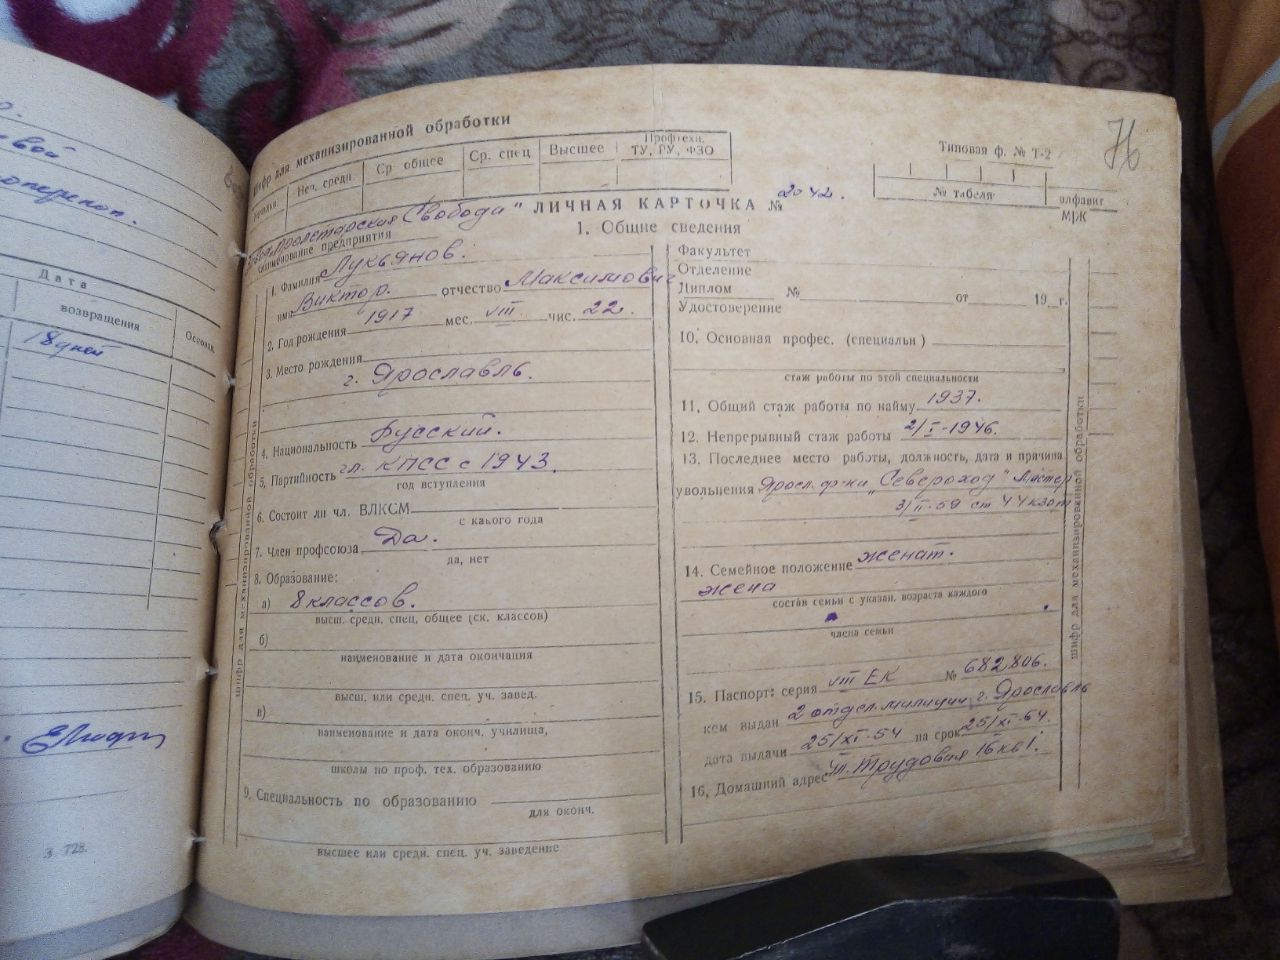 вой
оперекоп.
Дата
возвращения
Основан.
18 дней
З. 725.
шифр для механизированной обработки
Ср. общее
Ср. спец
Высшее
Профтехн.
ТУ, РУ, ФЗО
Типовая ф. № Т-2
№ табеля
алфавит
М|Ж
Пролетарская Свобода"
наименование предприятия
ЛИЧНАЯ КАРТОЧКА № 2042.
1. Общие сведения
1. Фамилия Лукьянов.
имя Виктор. отчество Максимович
2. Год рождения 1917 мес. VIII чис. 22.
3. Место рождения
г. Ярославль.
4. Национальность Русский.
5. Партийность чл. КПСС с 1943.
год вступления
6. Состоит ли чл. ВЛКСМ
с какого года
7. Член профсоюза Да.
да, нет
8. Образование:
а) 8 классов.
высш. средн. спец. общее (ск. классов)
б)
наименование и дата окончания
высш. или средн. спец. уч. завед.
в)
наименование и дата оконч. училища,
школы по проф. тех. образованию
9. Специальность по образованию
для оконч.
высшее или средн. спец. уч. заведение
Факультет
Отделение
Диплом № от 19 г.
Удостоверение
10. Основная профес. (специальн)
стаж работы по этой специальности
11. Общий стаж работы по найму 1937.
12. Непрерывный стаж работы 2/I-1946.
13. Последнее место работы, должность, дата и причина
увольнения Яросл. ф-ка „Североход" Мастер
3/II-59 ст 44 кзот
14. Семейное положение женат.
жена
состав семьи с указан. возраста каждого
члена семьи
15. Паспорт: серия VIII ЕК № 682806.
кем выдан 2 отдел. милиции г. Ярославль
дата выдачи 25/XI-54 на срок 25/XI-64.
16. Домашний адрес ул. Трудовая 16 кв 1.
шифр для механизированной обработки
шифр для механизированной обработки